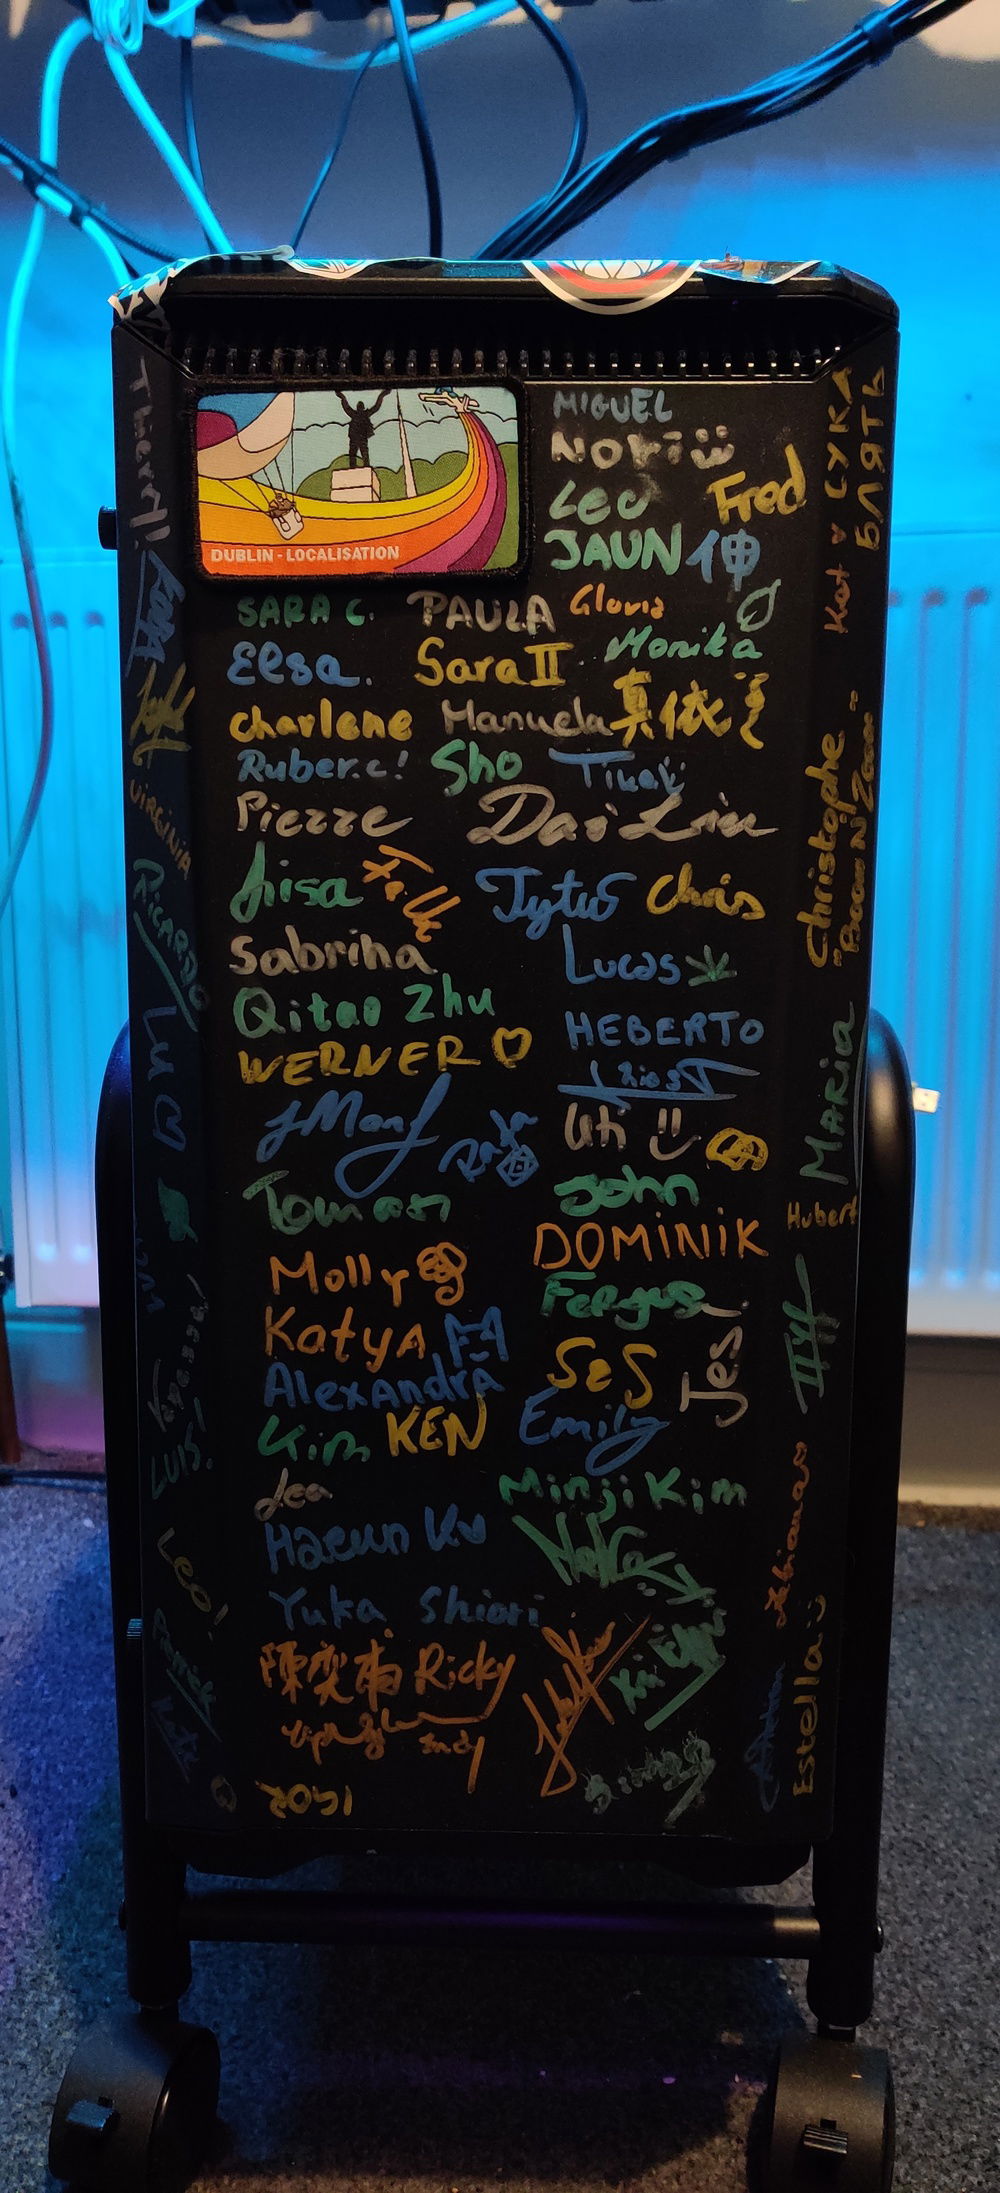 DUBLIN - LOCALISATION
MIGUEL
NORi
Leo
Fred
JAUN 伸
SARA C. PAULA Gloria
Elsa. Sara II Monika
charlene Manuela 真依
Ruben.c! Sho
Pierre Dai Lin
Lisa Tytus Chris
Sabrina Lucas
Qitao Zhu
HEBERTO
WERNER
Uti
Tomasz John
DOMINIK
Molly
Fergus
KatyA
SeS
Alexandra
Jes.
Kim KEN Emily
Lea Minji Kim
Haeun Ku
Yuka Shiori
陳奕甫 Ricky
Andy
IGOR
Thierry!
VIRGINIA
RICARDO
Vanessa!
LUIS!
Leo!
Patrick
Kat СУКА
БЛЯТЬ
Christophe
"BoonZoon"
MARia
Hubert
Fabiana
Estella